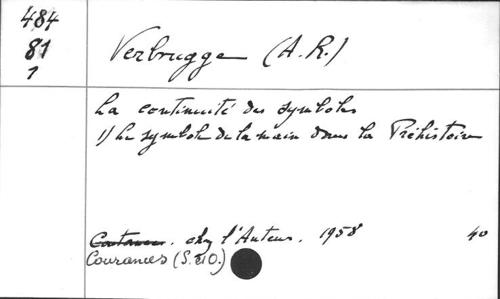 484
81
1
Verbrugge (A.R.)
La continuité des symboles
1) Le symbole de la main dans la Préhistoire
Coutances. chez l'Auteur. 1958 40
Courances (S. et O.)